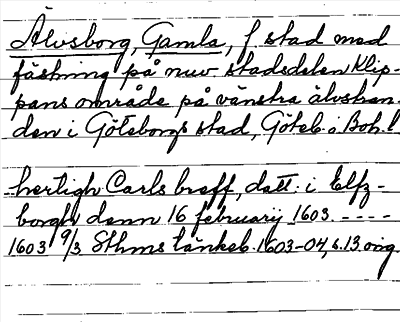 Älvsborg, Gamla, f stad med
fästning på nuv. stadsdelen Klip-
pans område på vänstra älvstran-
den i Göteborgs stad, Göteb. o Boh. l
hertigh Carls breff, dat: i Elfz-
borgh denn 16 februarij 1603. ----
1603 9/3 Sthms tänkeb. 1603-04, s. 13 orig